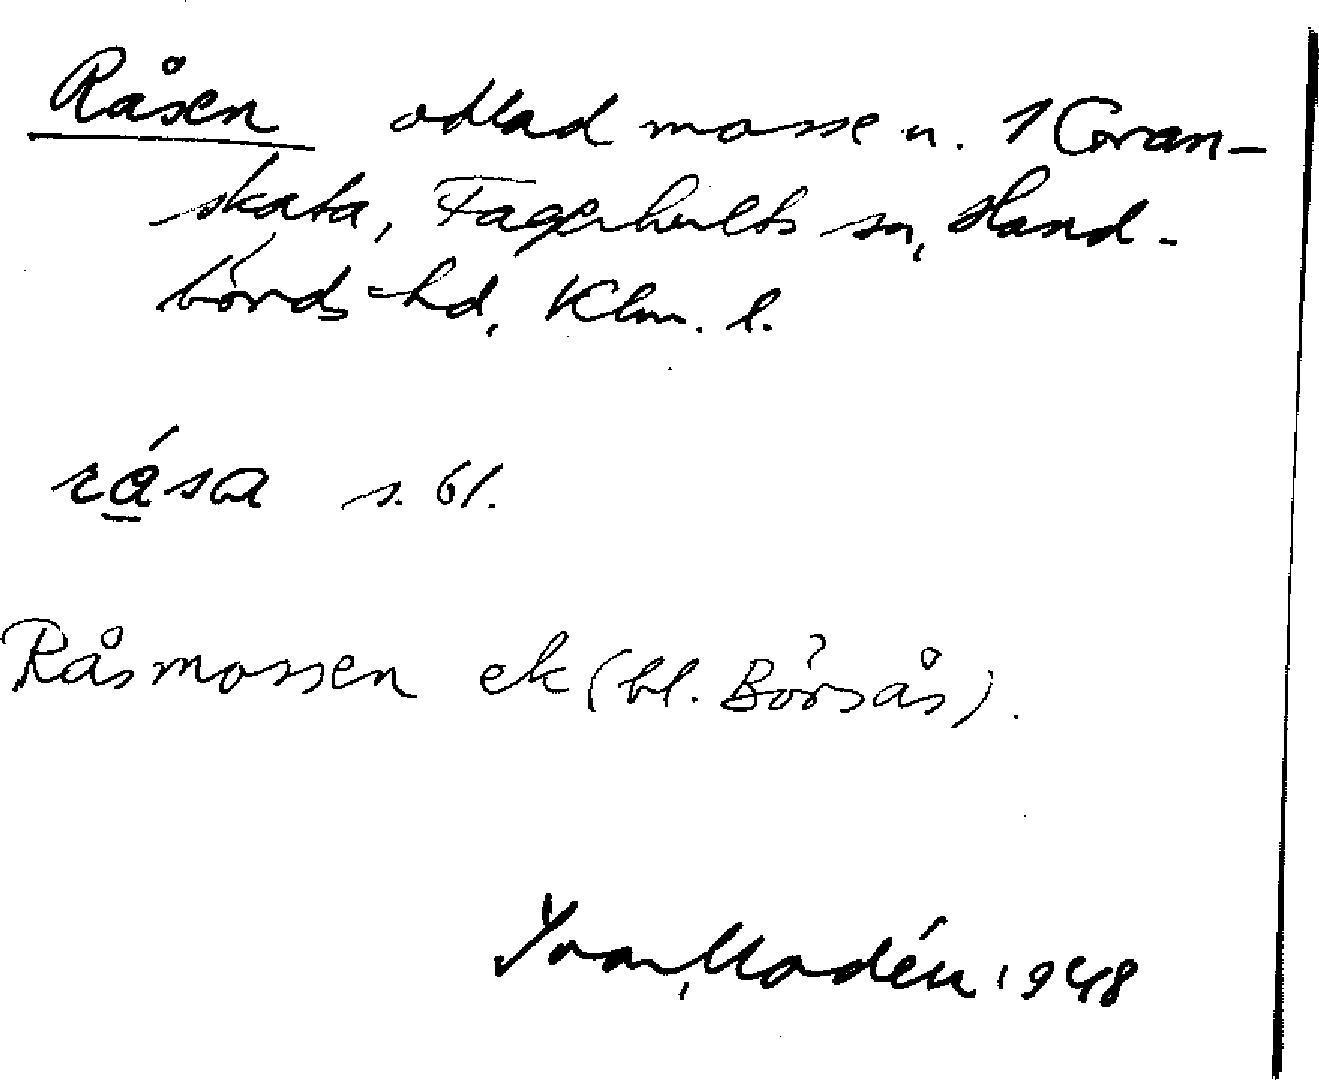 Råsen odlad mosse u. 1 Gran-
skata, Fagerhults sn, Hand-
börds hd, Klm. l.
råsa s. bl.
Råsmossen ek (bl. Börsås).
Ivar Modéu 1948